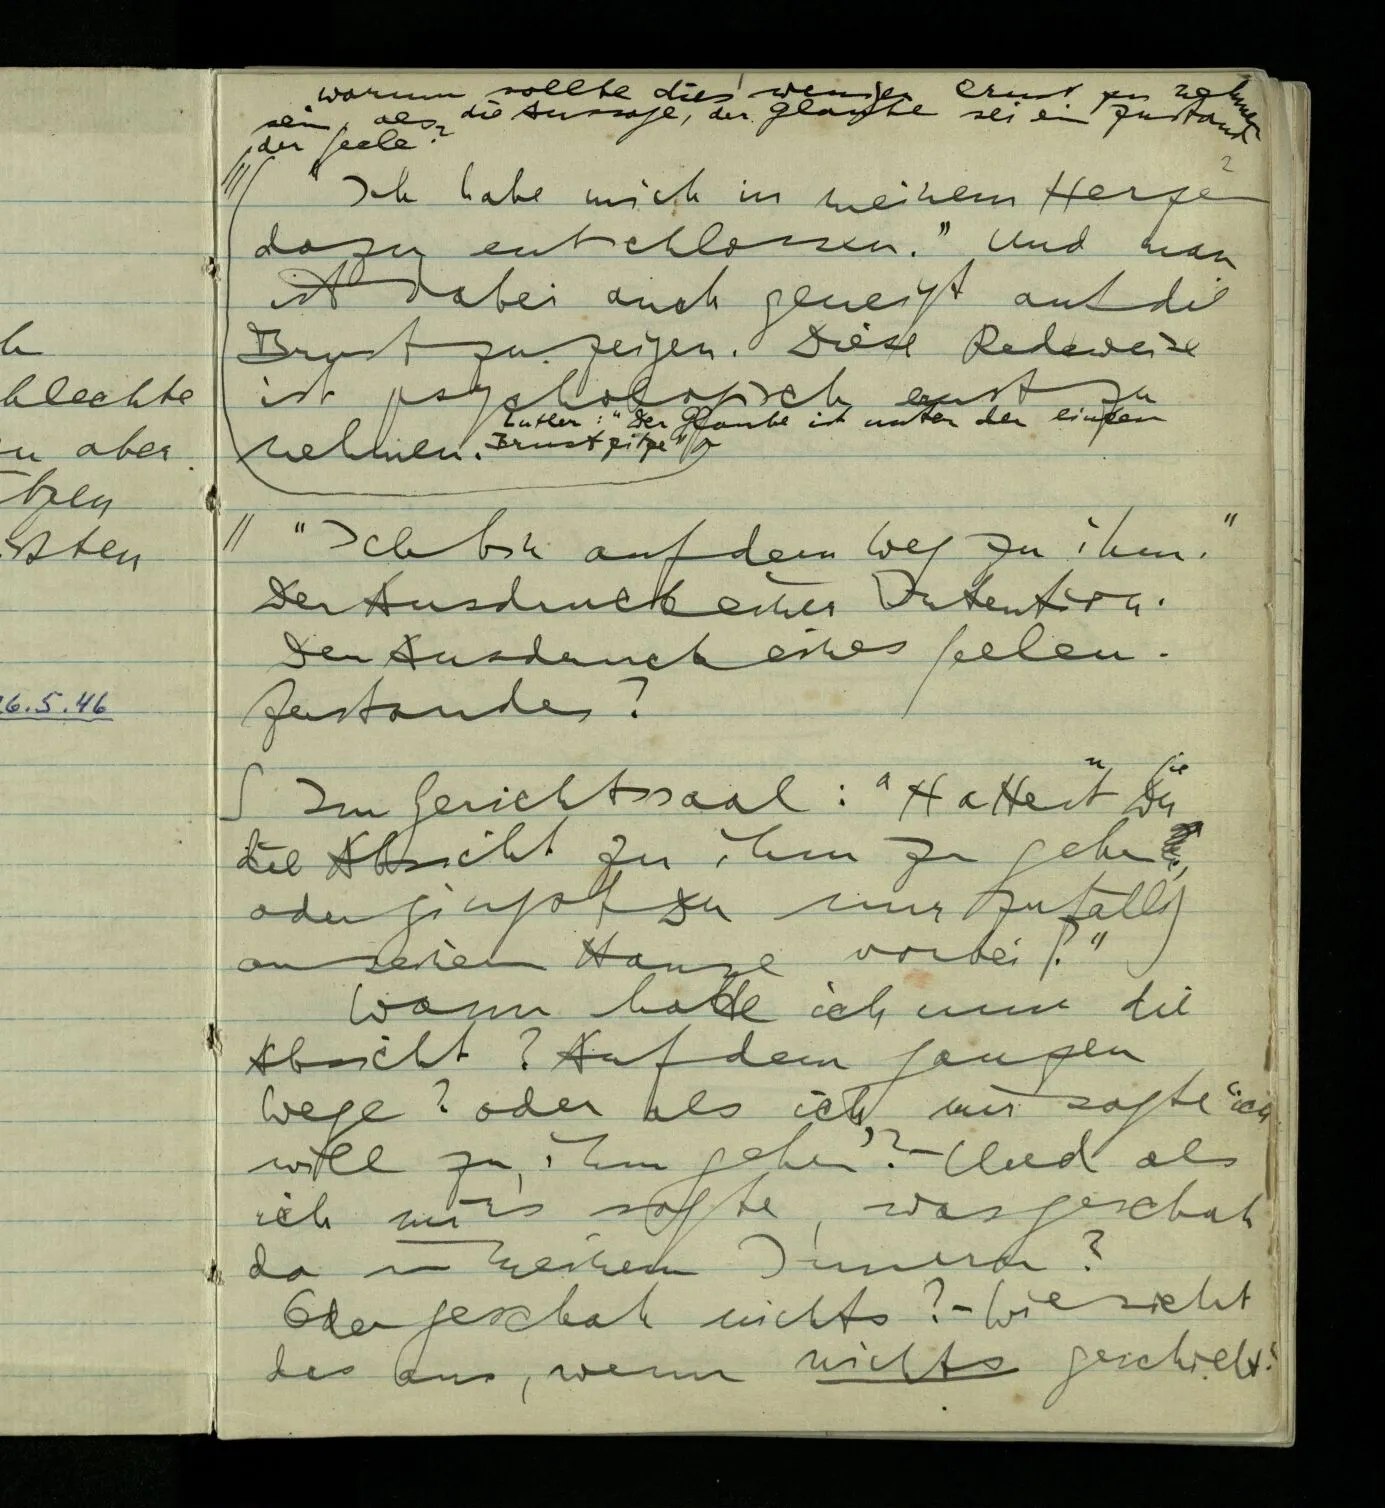 h
hlechte
n aber
tzen
isten
26.5.46
warum sollte dies weniger ernst zu nehmen
sein, als die Aussage, der Glaube sei ein Zustand
der Seele?
"Ich habe mich in meinem Herzen
dazu entschlossen." Und man
ist dabei auch geneigt auf die
Brust zu zeigen. Diese Redeweise
ist psychologisch ernst zu
Luther: "Der Glaube ist unter der linken
nehmen. Brustzitze"
" "Ich bin auf dem Weg zu ihm."
Der Ausdruck einer Intention.
Der Ausdruck eines Seelen-
zustandes?
∫ Im Gerichtssaal: "Hattest Du Sie
die Absicht zu ihm zu gehen,
oder gingst Du nur zufällig
an seinem Hause vorbei?"
Wann hatte ich nun die
Absicht? Auf dem ganzen
Wege? oder als ich mir sagte "ich
will zu ihm gehen"? – Und als
ich mir's sagte, was geschah
da in meinem Innern?
Oder geschah nichts? – Wie sieht
das aus, wenn nichts geschieht?